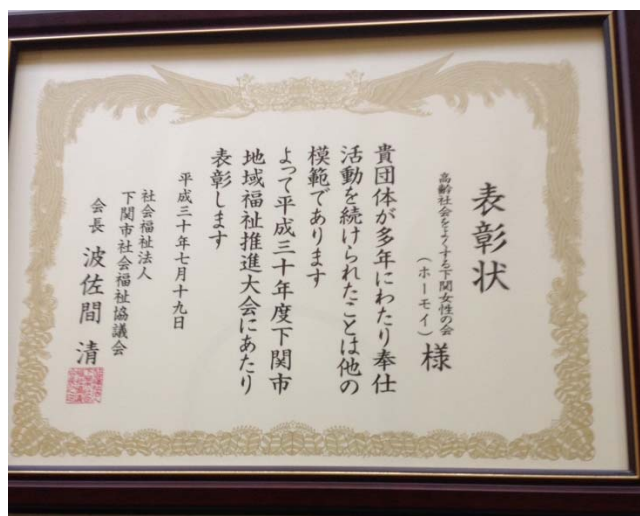 表彰状
高齢社会をよくする下関女性の会
（ホーモイ）様
貴団体が多年にわたり奉仕
活動を続けられたことは他の
模範であります
よって平成三十年度下関市
地域福祉推進大会にあたり
表彰します
平成三十年七月十九日
社会福祉法人
下関市社会福祉協議会
会長 波佐間 清